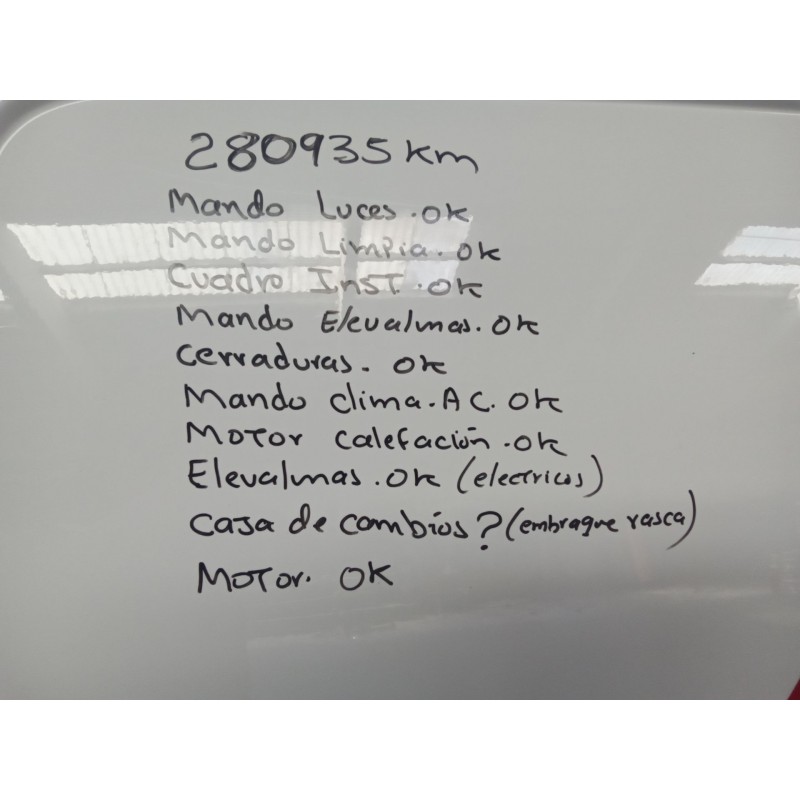 280935 km
Mando Luces. OK
Mando Limpia. OK
Cuadro Inst. OK
Mando Elevalunas. OK
Cerraduras. OK
Mando clima. A C. OK
Motor calefación. OK
Elevalunas. OK (electricos)
Caja de cambios? (embrague rasca)
Motor. OK